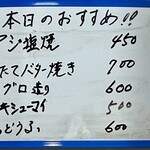 本日のおすすめ!!
アジ塩焼 450
たてバター焼き 700
グロ造り 600
キシューマイ 500
どうふ 600